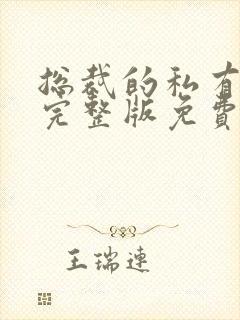 总裁的私有
完整版免費
王瑞連